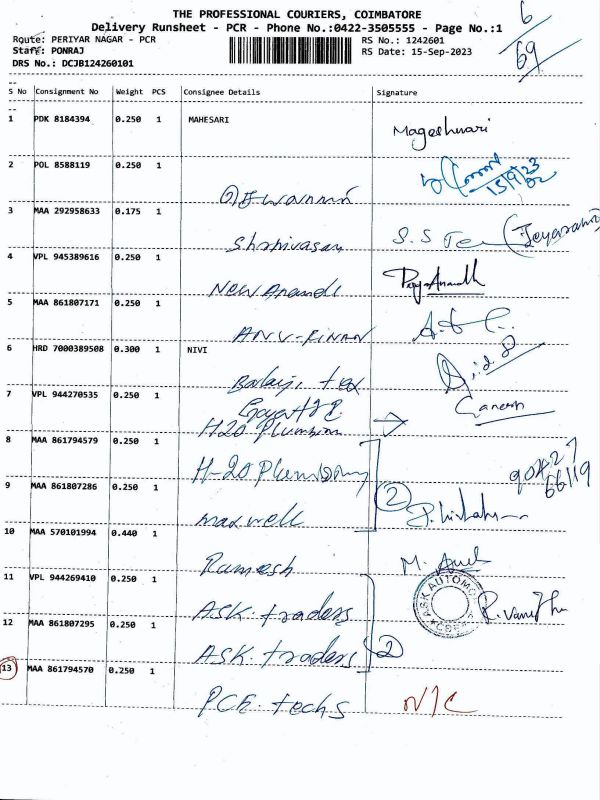 THE PROFESSIONAL COURIERS, COIMBATORE
Delivery Runsheet - PCR - Phone No.:0422-3505555 - Page No.:1
6
69
Route: PERIYAR NAGAR - PCR
RS No.: 1242601
Staff: PONRAJ
RS Date: 15-Sep-2023
DRS No.: DCJB124260101
S No Consignment No Weight PCS Consignee Details Signature
1 PDK 8184394 0.250 1 MAHESARI
Mageshwari
2 POL 8588119 0.250 1
15/9/23
3 MAA 292958633 0.175 1
Shrinivasan S.S
4 VPL 945389616 0.250 1
New Anandi
5 MAA 861807171 0.250 1
ANV-FINAN
6 HRD 7000389508 0.300 1 NIVI
Balaji tex
7 VPL 944270535 0.250 1
Ganesh
H20 Plumbing
8 MAA 861794579 0.250 1
H-20 Plumbing
90427
66119
9 MAA 861807286 0.250 1
2
maxwell
10 MAA 570101994 0.440 1
Ramesh M.
11 VPL 944269410 0.250 1
ASK AUTOMO
ASK. traders
12 MAA 861807295 0.250 1
ASK. traders 2
13 MAA 861794570 0.250 1
PCE. techs N/C